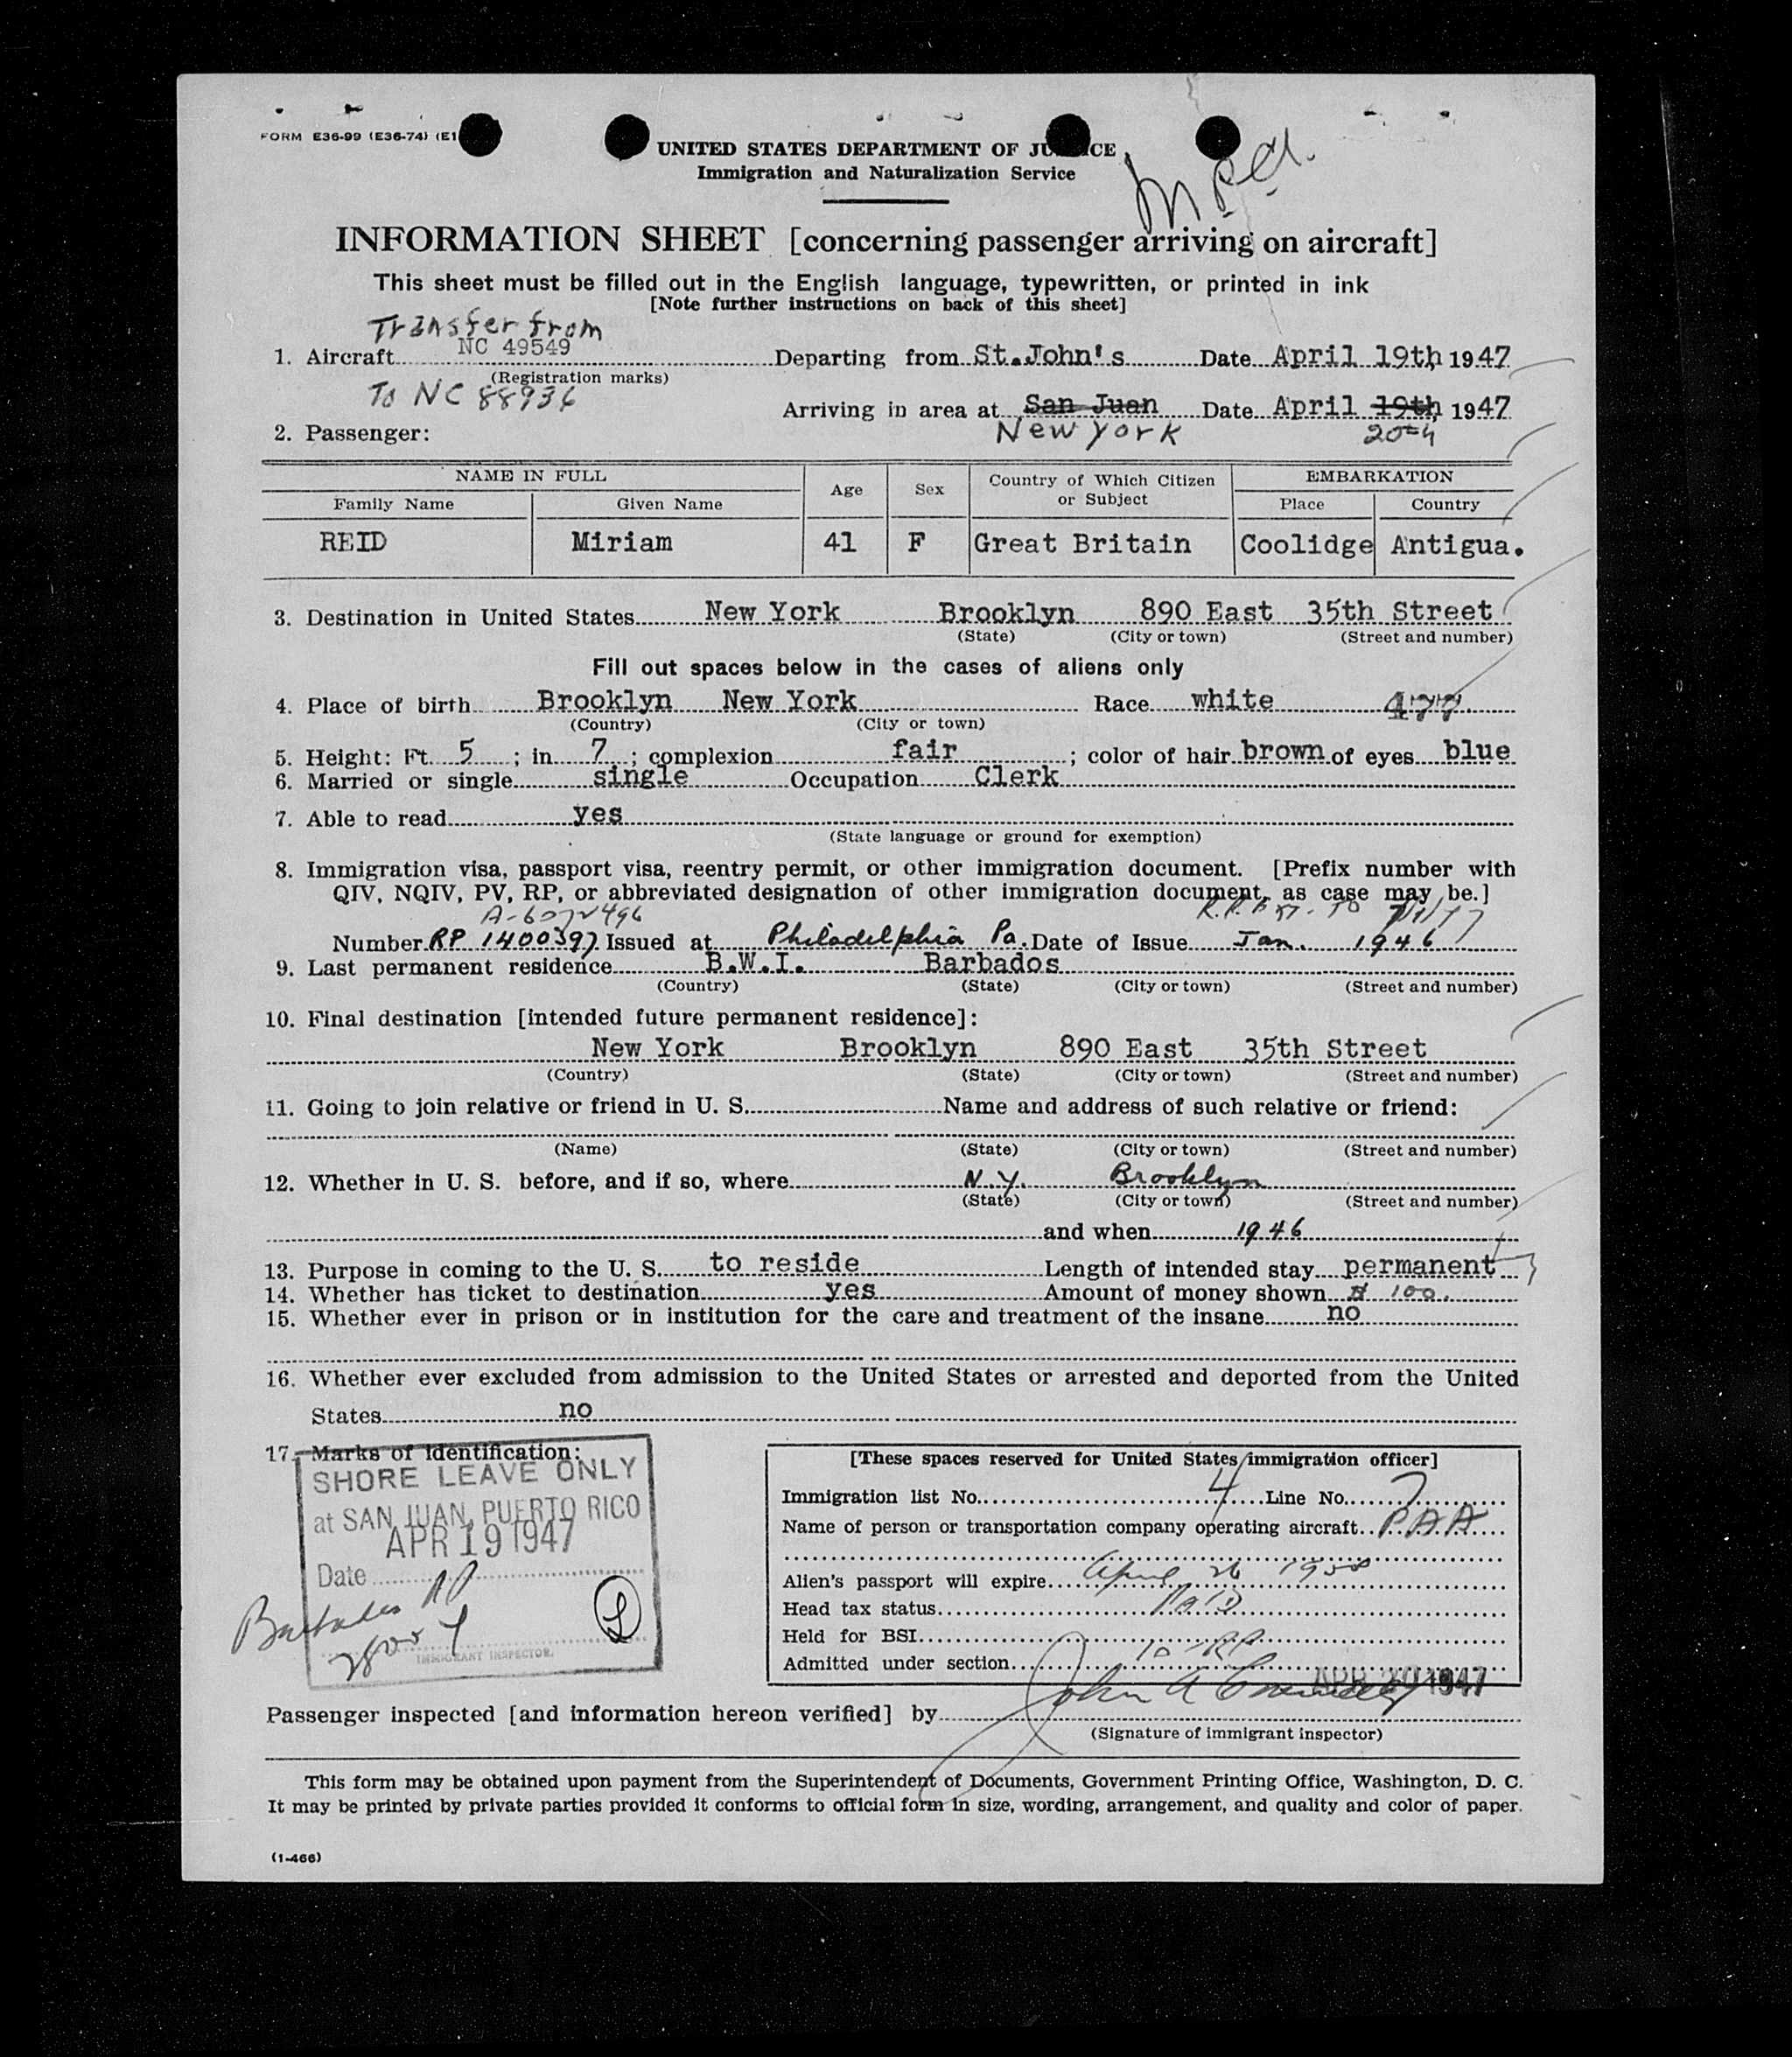 FORM E36-99 (E36-74) (E1
UNITED STATES DEPARTMENT OF JU CE
Immigration and Naturalization Service
INFORMATION SHEET [concerning passenger arriving on aircraft]
This sheet must be filled out in the English language, typewritten, or printed in ink
[Note further instructions on back of this sheet]
Transfer from
1. Aircraft NC 49549 Departing from St.John's Date April 19th 1947
(Registration marks)
To NC 88936
Arriving in area at San Juan Date April 19th 1947
New York 20th
2. Passenger:
NAME IN FULL Age Sex Country of Which Citizen or Subject EMBARKATION
Family Name Given Name Place Country
REID Miriam 41 F Great Britain Coolidge Antigua.
3. Destination in United States New York Brooklyn 890 East 35th Street
(State) (City or town) (Street and number)
Fill out spaces below in the cases of aliens only
4. Place of birth Brooklyn New York Race white 477
(Country) (City or town)
5. Height: Ft. 5 ; in 7 ; complexion fair ; color of hair brown of eyes blue
6. Married or single single Occupation Clerk
7. Able to read yes
(State language or ground for exemption)
8. Immigration visa, passport visa, reentry permit, or other immigration document. [Prefix number with
QIV, NQIV, PV, RP, or abbreviated designation of other immigration document, as case may be.]
Number RP 1400397 Issued at Philadelphia Pa. Date of Issue Jan. 1946
9. Last permanent residence B.W.I. Barbados
(Country) (State) (City or town) (Street and number)
10. Final destination [intended future permanent residence]:
New York Brooklyn 890 East 35th Street
(Country) (State) (City or town) (Street and number)
11. Going to join relative or friend in U. S. Name and address of such relative or friend:
(Name) (State) (City or town) (Street and number)
12. Whether in U. S. before, and if so, where N.Y. Brooklyn
(State) (City or town) (Street and number)
and when 1946
13. Purpose in coming to the U. S. to reside Length of intended stay permanent
14. Whether has ticket to destination yes Amount of money shown $ 100.
15. Whether ever in prison or in institution for the care and treatment of the insane no
16. Whether ever excluded from admission to the United States or arrested and deported from the United
States no
17. Marks of identification:
SHORE LEAVE ONLY
at SAN JUAN, PUERTO RICO
APR 19 1947
Date
Barbados
IMMIGRANT INSPECTOR.
[These spaces reserved for United States immigration officer]
Immigration list No. 4 Line No. 7
Name of person or transportation company operating aircraft PAA
Alien's passport will expire April 26 1950
Head tax status PAID
Held for BSI
Admitted under section
APR 20 1947
Passenger inspected [and information hereon verified] by
(Signature of immigrant inspector)
This form may be obtained upon payment from the Superintendent of Documents, Government Printing Office, Washington, D. C.
It may be printed by private parties provided it conforms to official form in size, wording, arrangement, and quality and color of paper.
(1-466)